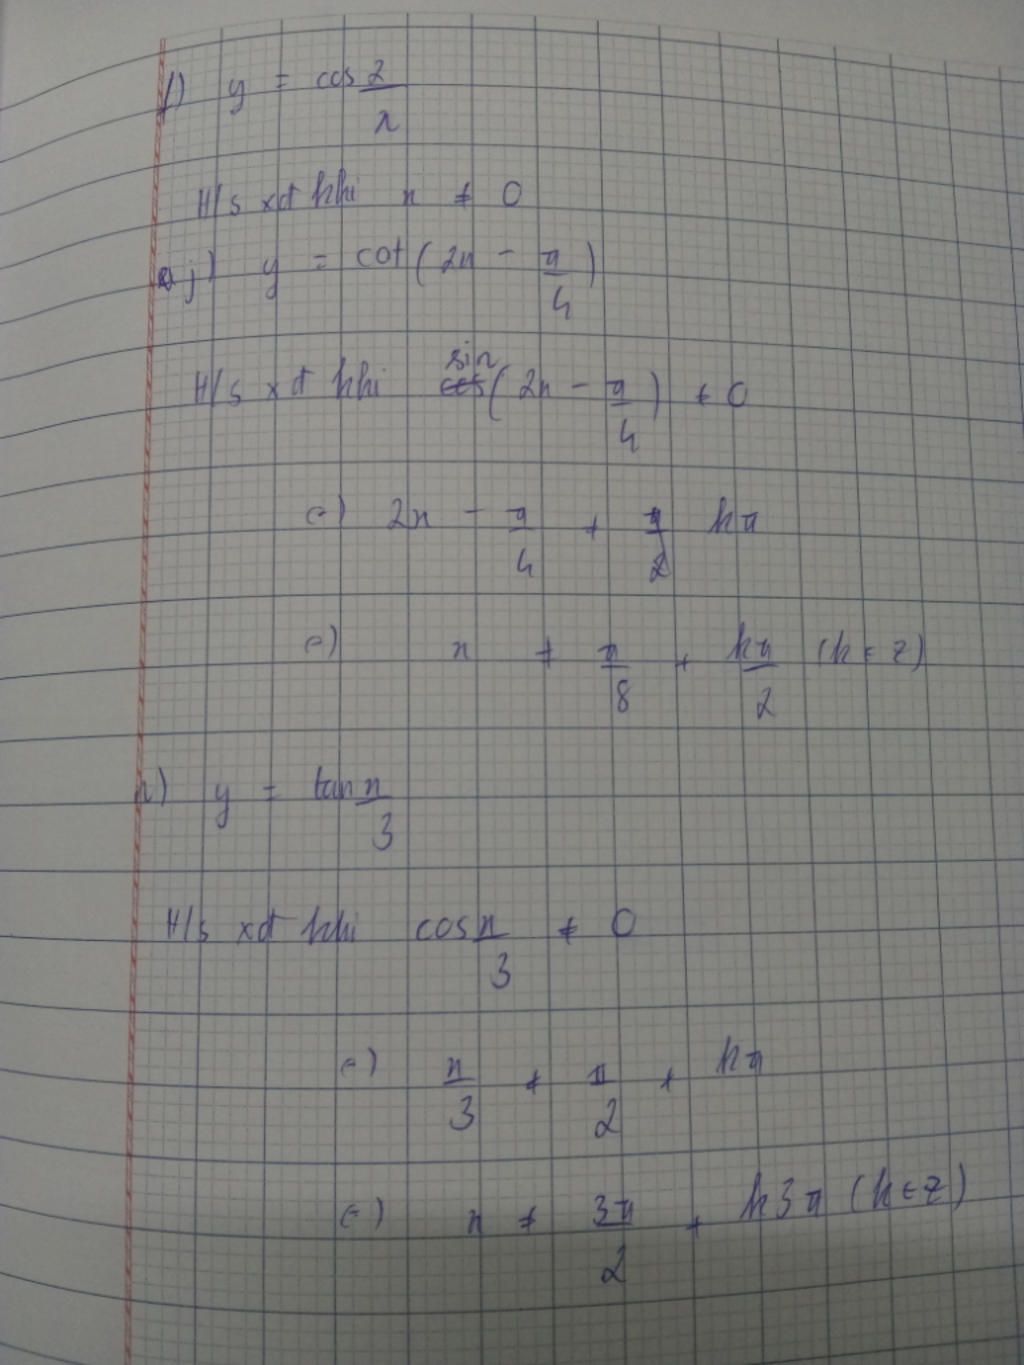 f) y = cos 2/x
H/s xđ khi x ≠ 0
j) y = cot(2x - π/4)
H/s xđ khi sin(2x - π/4) ≠ 0
⇔ 2x - π/4 ≠ kπ
⇔ x ≠ π/8 + kπ/2 (k ∈ Z)
y = tan x/3
H/s xđ khi cos x/3 ≠ 0
⇔ x/3 ≠ π/2 + kπ
⇔ x ≠ 3π/2 + k3π (k ∈ Z)